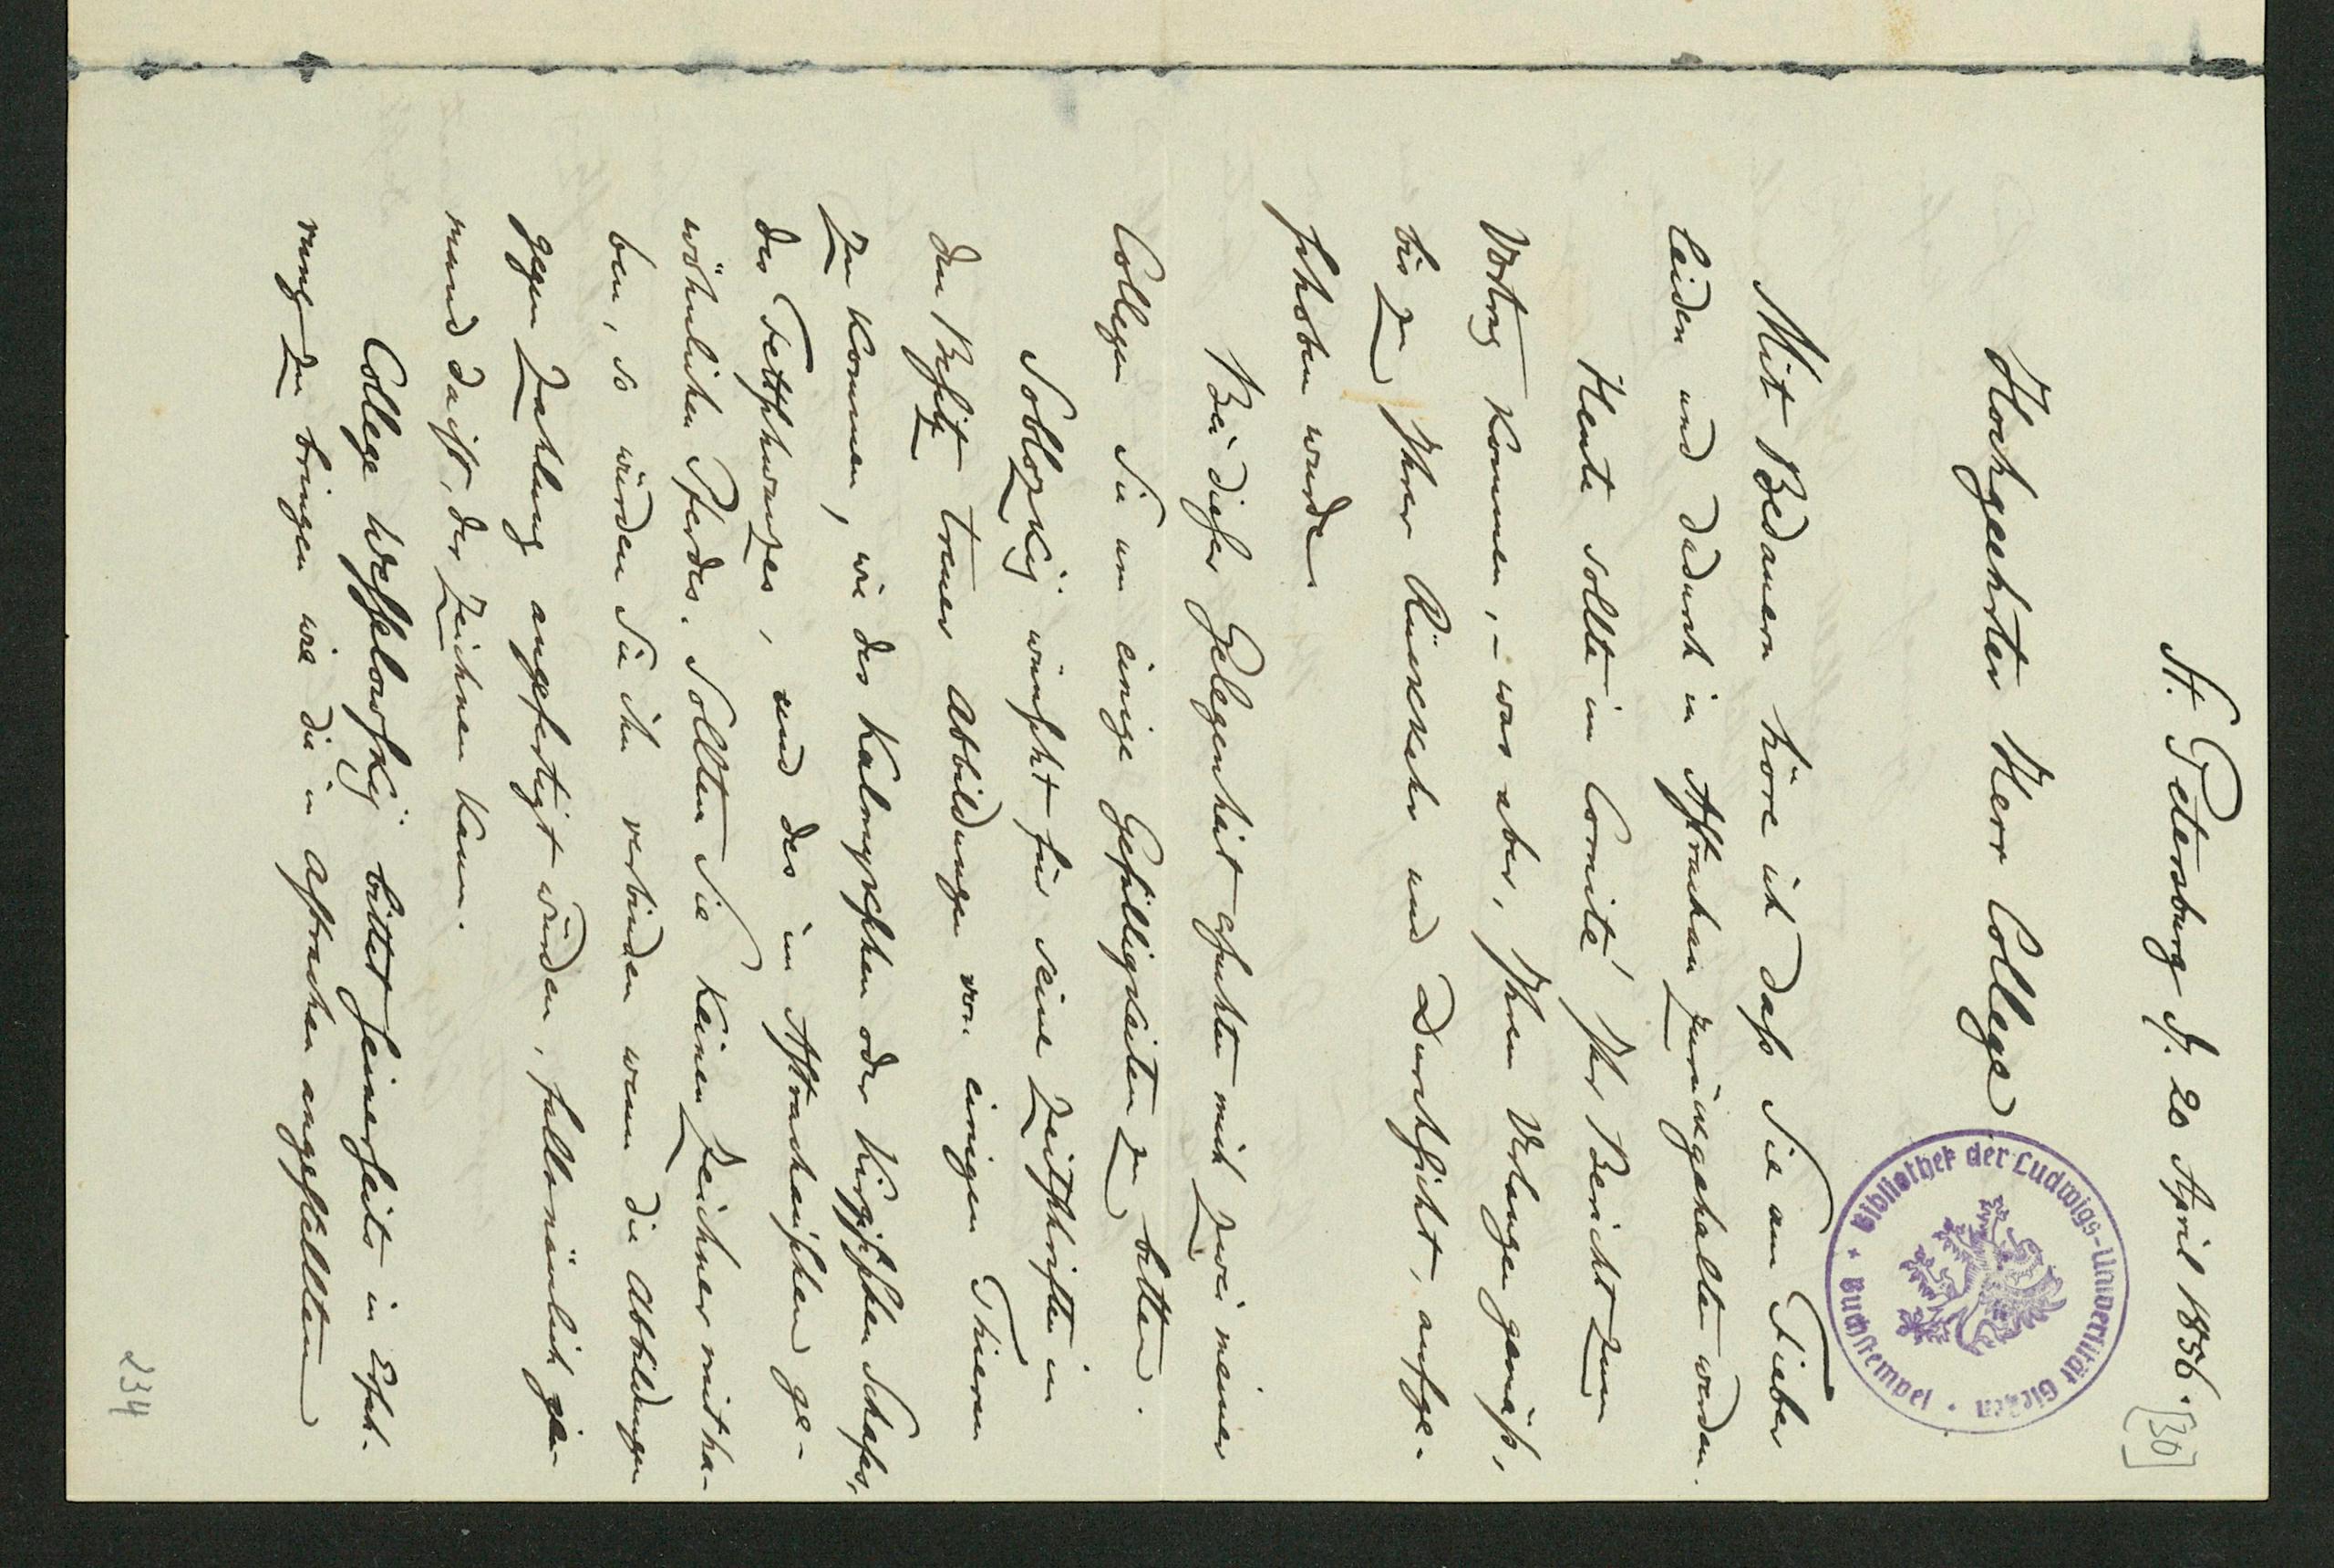 St. Petersburg d. 20 April 1856.
[30]
Bibliothek der Ludwigs-Universität Gießen
Buchstempel
Hochgeehrter Herr College
Mit Bedauern höre ich daß Sie am Fieber
leiden und dadurch in Astrachan zurückgehalten werden.
Heute sollte im Comité Ihr Bericht zum
Vortrag kommen, – was aber, Ihrem Verlangen gemäß,
bis zu Ihrer Rückkehr und Durchsicht, aufge-
schoben wurde.
Bei dieser Gelegenheit ersuchten mich zwei meiner
Collegen Sie um einige Gefälligkeiten zu bitten.
Soblozkij wünscht für seine Zeitschriften in
den Besitz treuer Abbildungen von einigen Thieren
zu kommen, wie des Kalmykschen oder Kirgisischen Schafes,
des Fettschwanzes, und des im Astrachanischen ge-
wöhnlichen Pferdes. Sollten Sie keinen Zeichner mitha-
ben, so würden Sie ihn verbinden wenn die Abbildungen
gegen Zahlung angefertigt würden, falls nämlich je-
mand da ist, der zeichnen kann.
College Wesselowskij bittet seinerseits in Erfah-
rung zu bringen wie die in Astrachan angestellten
234